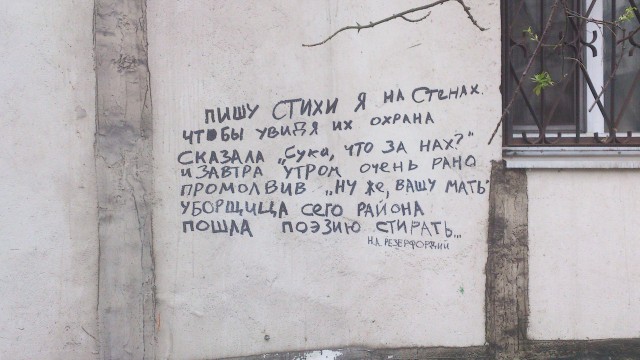 ПИШУ СТИХИ Я НА СТЕНАХ.
ЧТОБЫ УВИДЯ ИХ ОХРАНА
СКАЗАЛА „Сука, ЧТО ЗА НАХ?"
И ЗАВТРА УТРОМ ОЧЕНЬ РАНО
ПРОМОЛВИВ „НУ ЖЕ, ВАШУ МАТЬ"
УБОРЩИЦА СЕГО РАЙОНА
ПОШЛА ПОЭЗИЮ СТИРАТЬ...
Н.А. РЕЗЕРФОРДИЙ